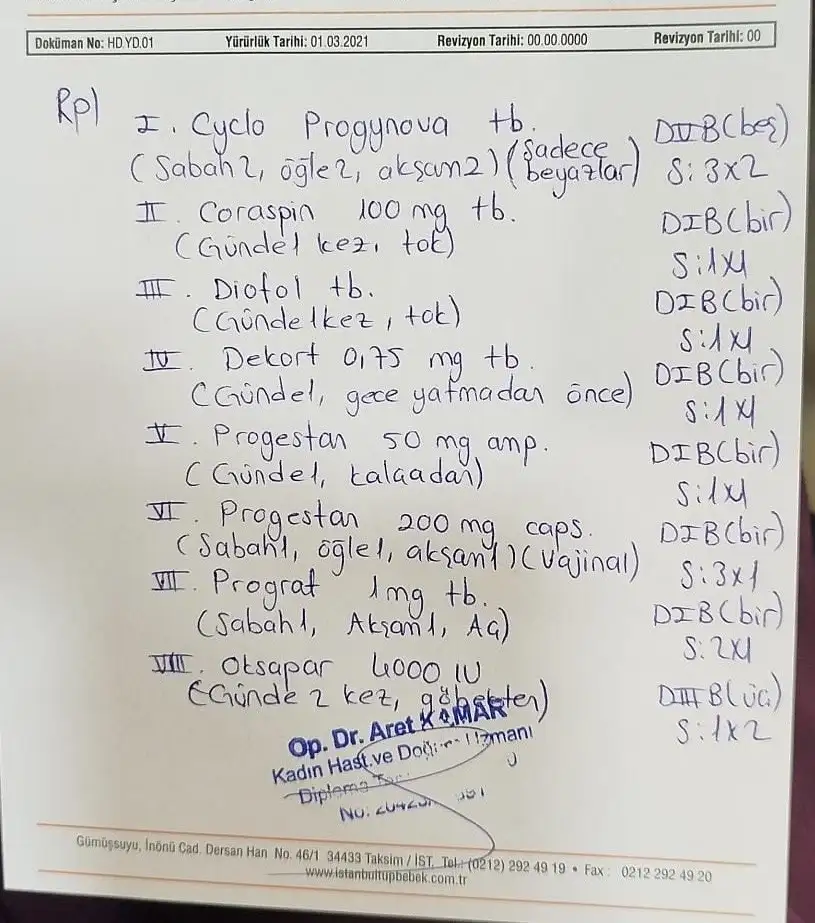 Doküman No: HD.YD.01 Yürürlük Tarihi: 01.03.2021 Revizyon Tarihi: 00.00.0000 Revizyon Tarihi: 00
Rp)
I. Cyclo Progynova tb. DVB(beş)
(Sabah 2, öğle 2, akşam 2) (Sadece beyazlar) S: 3x2
II. Coraspin 100 mg tb. DIB(bir)
(Günde 1 kez, tok) S: 1x1
III. Diofol tb. DIB(bir)
(Günde 1 kez, tok) S: 1x1
IV. Dekort 0,75 mg tb. DIB(bir)
(Günde 1, gece yatmadan önce) S: 1x1
V. Progestan 50 mg amp. DIB(bir)
(Günde 1, kalçadan) S: 1x1
VI. Progestan 200 mg caps. DIB(bir)
(Sabah 1, öğle 1, akşam 1) (Vajinal) S: 3x1
VII. Prograf 1 mg tb. DIB(bir)
(Sabah 1, Akşam 1, Aç) S: 2x1
VIII. Oksapar 4000 IU DIIIB(üç)
(Günde 2 kez, göbekten) S: 1x2
Op. Dr. Aret KAMAR
Kadın Hast. ve Doğum Uzmanı
Diploma
No:
Gümüşsuyu, İnönü Cad. Dersan Han No. 46/1 34433 Taksim / İST. Tel.: (0212) 292 49 19 • Fax : 0212 292 49 20
www.istanbultupbebek.com.tr